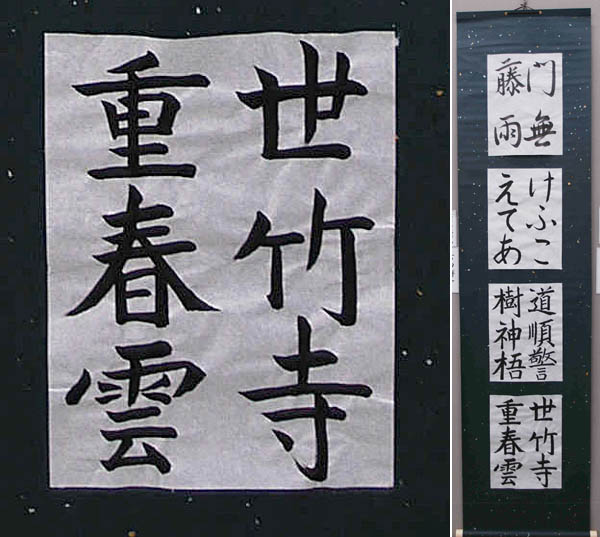 世竹寺
重春雲
門無
藤雨
けふこ
えてあ
道順警
樹神梧
世竹寺
重春雲